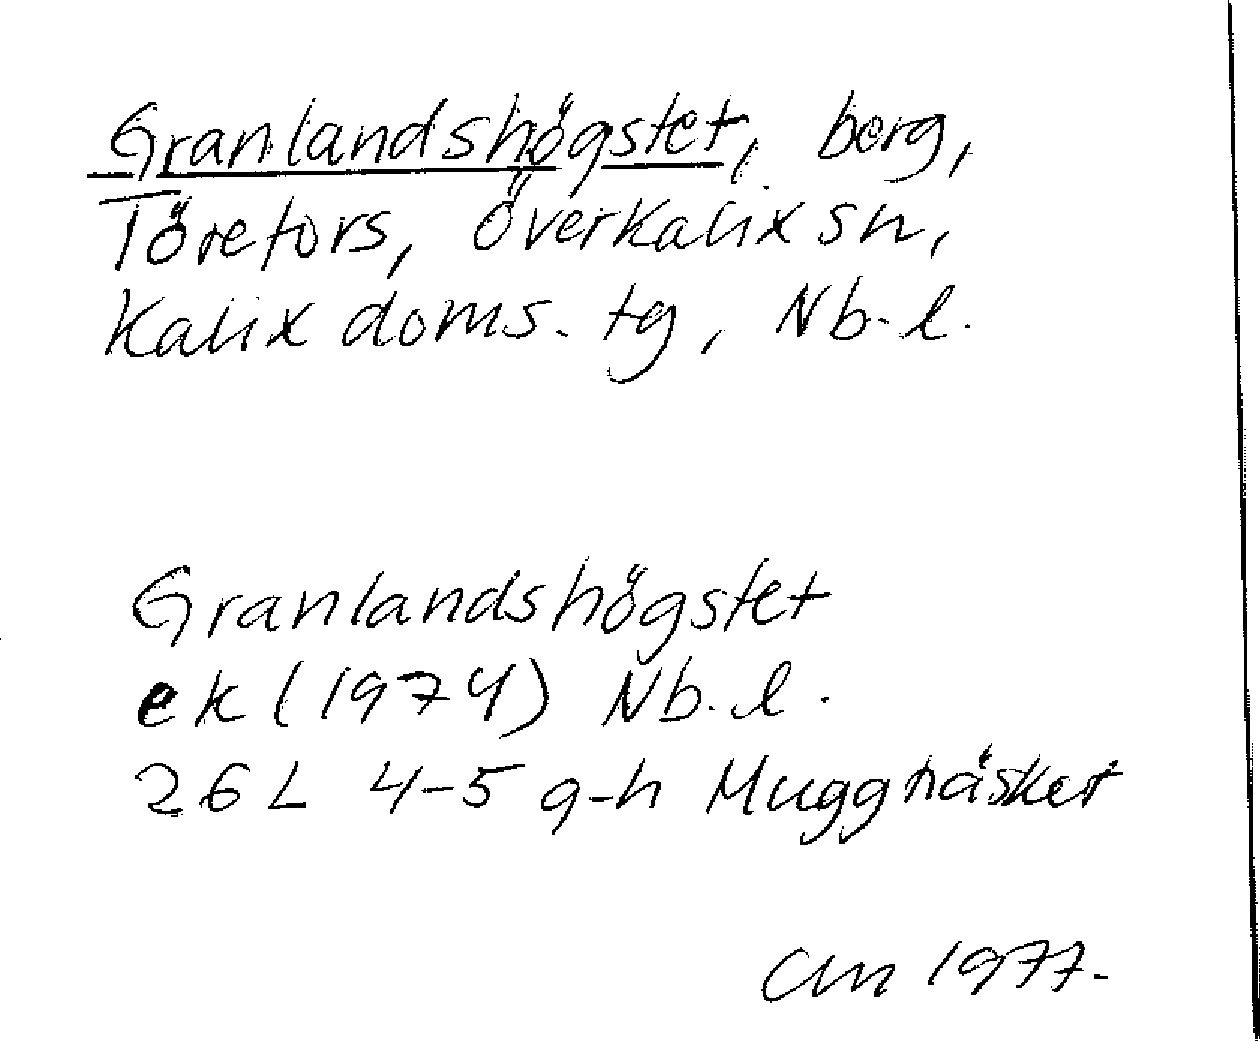 Granlandshögstet, berg,
Töretors, Överkalix sn,
Kalix doms. tg, Nb. l.
Granlandshögstet
ek (1974) Nb. l.
26 L 4-5 g-h Muggträsket
1977.